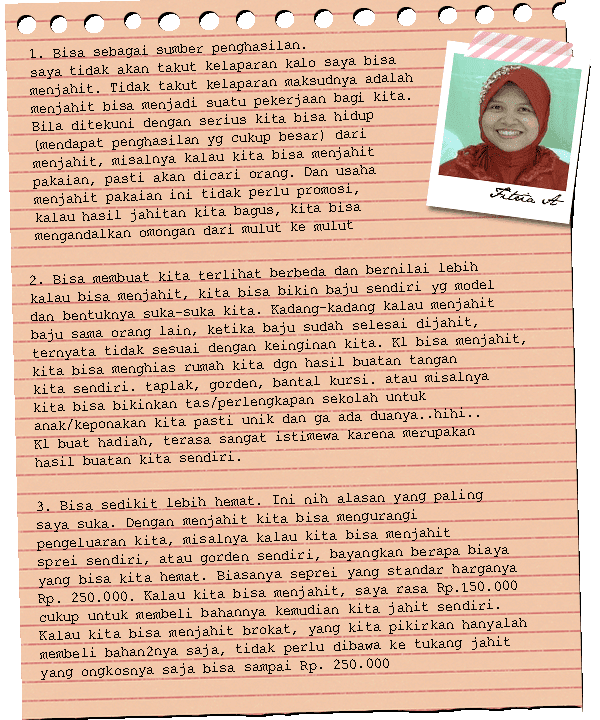 1. Bisa sebagai sumber penghasilan.
saya tidak akan takut kelaparan kalo saya bisa
menjahit. Tidak takut kelaparan maksudnya adalah
menjahit bisa menjadi suatu pekerjaan bagi kita.
Bila ditekuni dengan serius kita bisa hidup
(mendapat penghasilan yg cukup besar) dari
menjahit, misalnya kalau kita bisa menjahit
pakaian, pasti akan dicari orang. Dan usaha
menjahit pakaian ini tidak perlu promosi,
kalau hasil jahitan kita bagus, kita bisa
mengandalkan omongan dari mulut ke mulut
Fitria A
2. Bisa membuat kita terlihat berbeda dan bernilai lebih
kalau bisa menjahit, kita bisa bikin baju sendiri yg model
dan bentuknya suka-suka kita. Kadang-kadang kalau menjahit
baju sama orang lain, ketika baju sudah selesai dijahit,
ternyata tidak sesuai dengan keinginan kita. Kl bisa menjahit,
kita bisa menghias rumah kita dgn hasil buatan tangan
kita sendiri. taplak, gorden, bantal kursi. atau misalnya
kita bisa bikinkan tas/perlengkapan sekolah untuk
anak/keponakan kita pasti unik dan ga ada duanya..hihi..
Kl buat hadiah, terasa sangat istimewa karena merupakan
hasil buatan kita sendiri.
3. Bisa sedikit lebih hemat. Ini nih alasan yang paling
saya suka. Dengan menjahit kita bisa mengurangi
pengeluaran kita, misalnya kalau kita bisa menjahit
sprei sendiri, atau gorden sendiri, bayangkan berapa biaya
yang bisa kita hemat. Biasanya seprei yang standar harganya
Rp. 250.000. Kalau kita bisa menjahit, saya rasa Rp.150.000
cukup untuk membeli bahannya kemudian kita jahit sendiri.
Kalau kita bisa menjahit brokat, yang kita pikirkan hanyalah
membeli bahan2nya saja, tidak perlu dibawa ke tukang jahit
yang ongkosnya saja bisa sampai Rp. 250.000